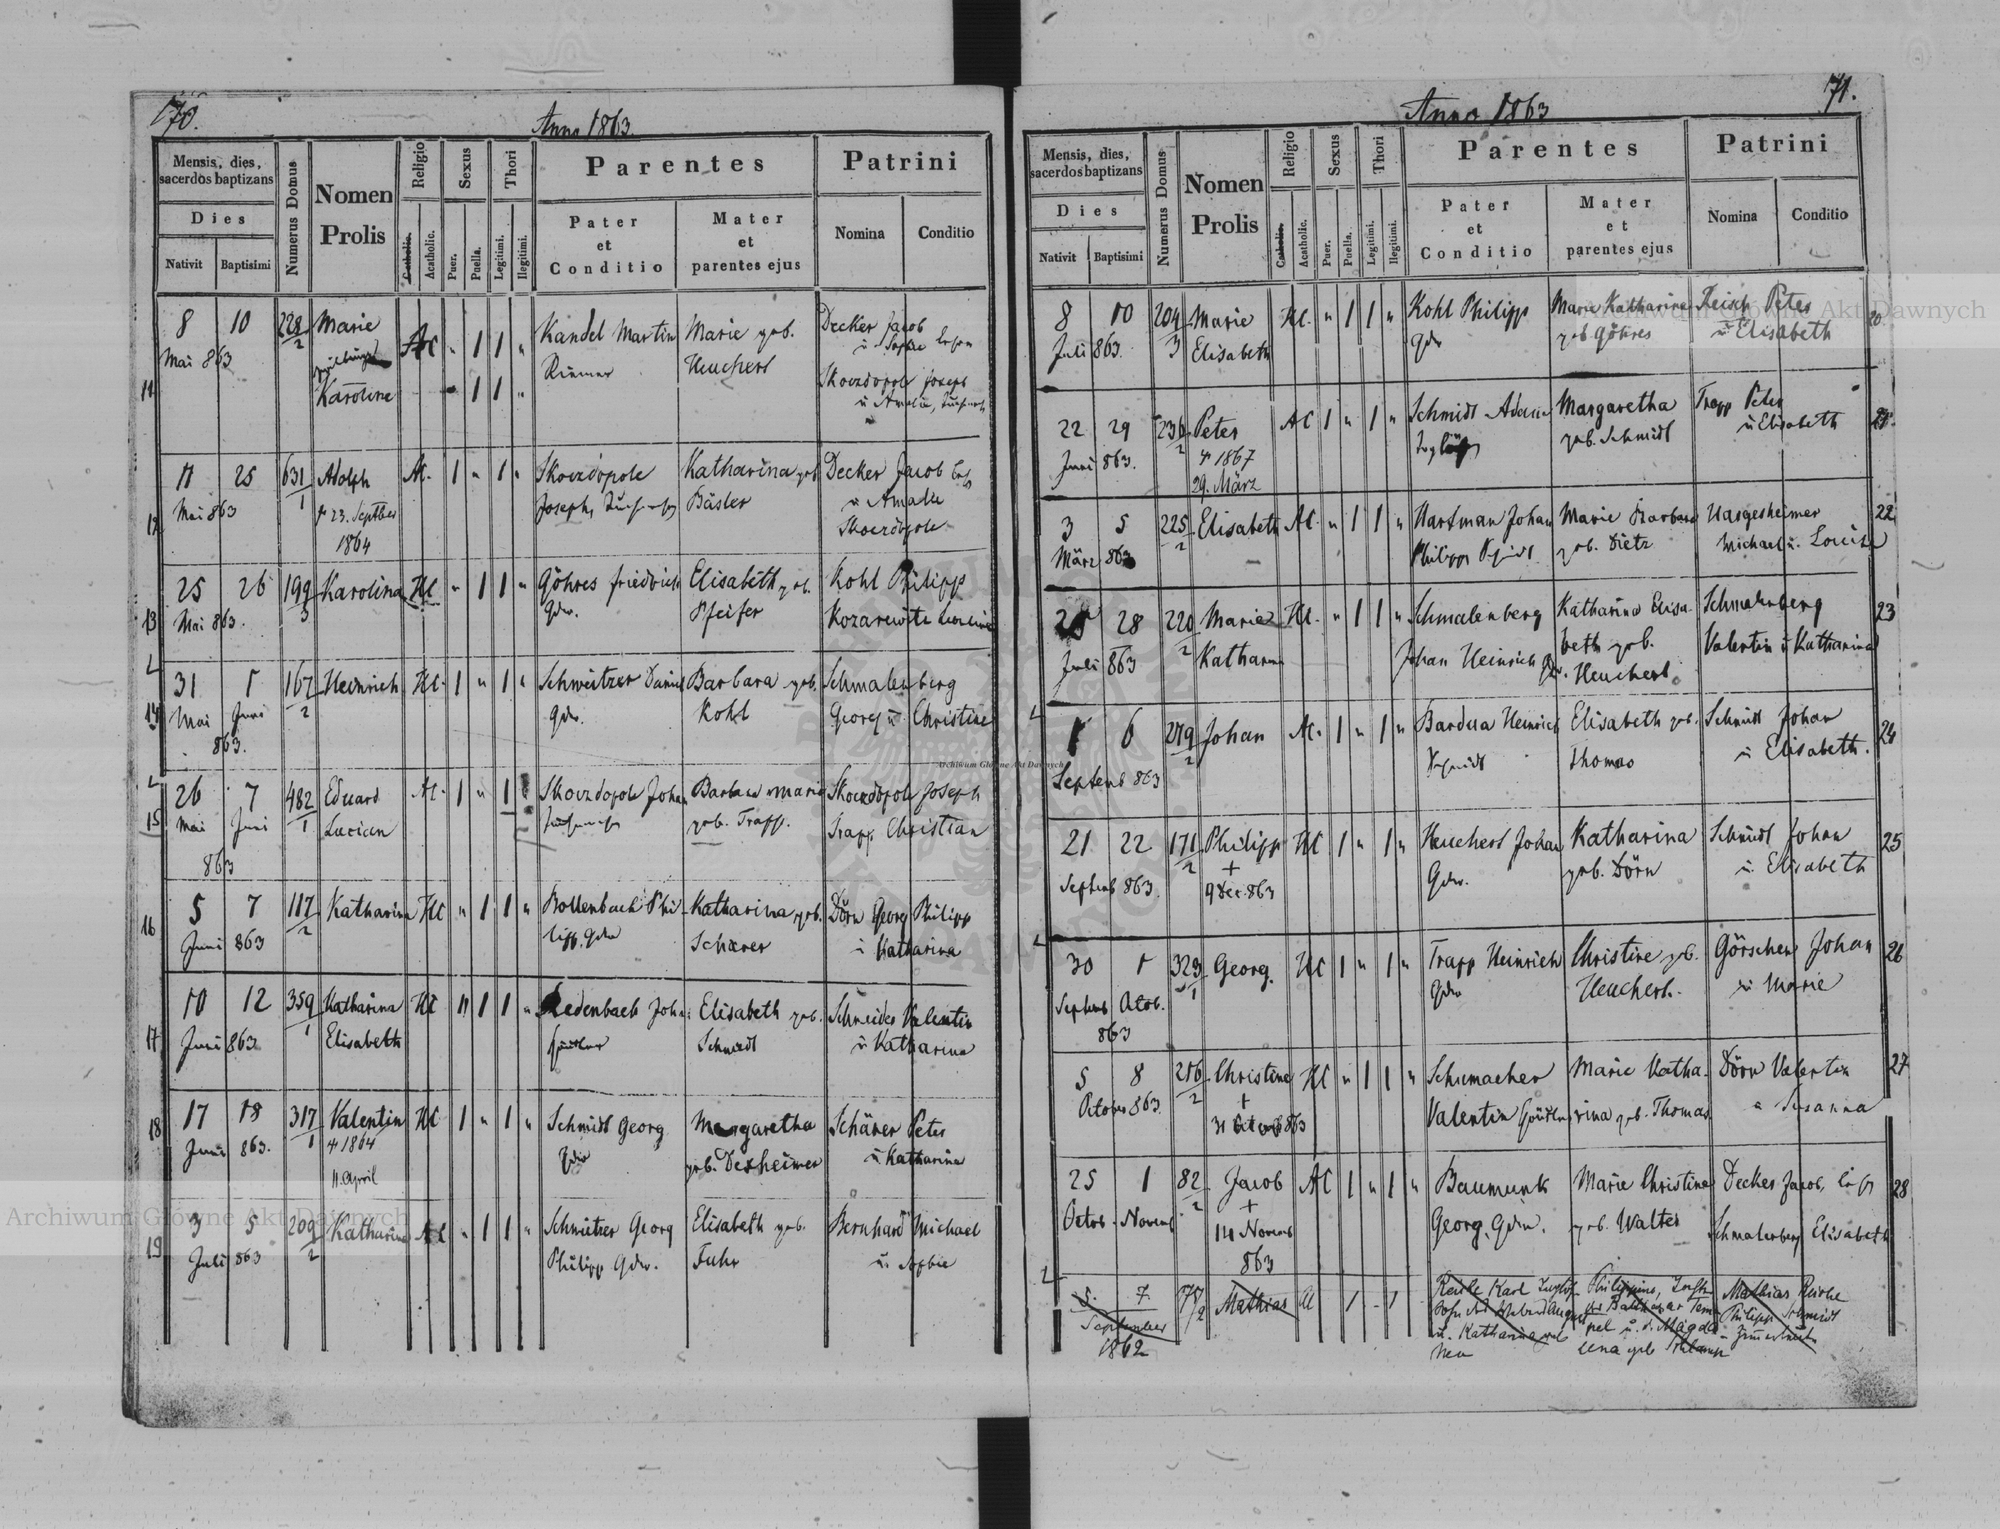 170.
Anno 1863.
Mensis, dies,
sacerdos baptizans
Dies
Nativit
Baptisimi
Numerus Domus
Nomen
Prolis
Religio
Catholic.
Acatholic.
Sexus
Puer.
Puella.
Thori
Legitimi.
Ilegitimi.
Parentes
Pater
et
Conditio
Mater
et
parentes ejus
Patrini
Nomina
Conditio
11
8 10 228/2 Marie AC " 1 1 " Kandel Martin Marie geb. Decker Jacob
Mai 863 Riemer Heuchert u Sophie
Karoline " 1 1 " Skorzdopole Joseph
u Amalie,
12
11 25 631/1 Adolph AC. 1 " 1 " Skorzdopole Katharina geb. Decker Jacob
Mai 863 23. Septber Joseph, Bäsler u Amalie
1864 Skorzdopole
13
25 26 199/3 Karolina HC " 1 1 " Göhres Friedrich Elisabeth geb. Kohl Philipp
Mai 863. Gdw. Pfeifer
14
31 1 167/2 Heinrich HC. 1 " 1 " Schweitzer Daniel Barbara geb. Schmalenberg
Mai Juni Gdw. Kohl Georg u Christine
863.
15
26 7 482/1 Eduard AC. 1 " 1 Skorzdopole Johan Barbara Maria Skorzdopole Joseph
Mai Juni Lucian geb. Trapp. Trapp Christian
863
16
5 7 117/2 Katharina HC " 1 1 " Bollenbach Phi- Katharina geb. Dörn Georg Philipp
Juni 863 lipp, Gdw Schärer u Katharina
17
10 12 359/1 Katharina HC " 1 1 " Redenbach Johan Elisabeth geb. Schneider Valentin
Juni 863 Elisabeth Schmidt u Katharina
18
17 18 317/1 Valentin HC 1 " 1 " Schmidt Georg Margaretha Schärer Peter
Juni 863. 1864 Gdw geb. Dexheimer u Katharina
11. April
19
3 5 209/2 Katharina AC " 1 1 " Schweitzer Georg Elisabeth geb. Bernhard Michael
Juli 863 Philipp Gdw. Fuhr u. Sophie
171.
Anno 1863
Mensis, dies,
sacerdos baptizans
Dies
Nativit
Baptisimi
Numerus Domus
Nomen
Prolis
Religio
Catholic.
Acatholic.
Sexus
Puer.
Puella.
Thori
Legitimi.
Ilegitimi.
Parentes
Pater
et
Conditio
Mater
et
parentes ejus
Patrini
Nomina
Conditio
8 10 204/3 Marie HC. " 1 1 " Kohl Philipp Marie Katharina Peter 20
Juli 863. Elisabeth Gdw geb Göhres u Elisabeth
22 29 236/2 Peter AC 1 " 1 " Schmidt Adam Margaretha Trapp Peter 21
Juni 863. 1867 geb. Schmidt u Elisabeth
29. März
3 5 225/2 Elisabeth AC. " 1 1 " Hartman Johan Marie Barbara Hargesheimer 22
März 863 Philipp Schmidt geb. Dietz Michael u. Louise
28 220/2 Marie HC. " 1 1 " Schmalenberg Katharina Elisa- Schmalenberg 23
Juli 863 Katharina Johan Heinrich Gdw. beth geb. Valentin u Katharina
Heuchert
1 6 279/2 Johan AC. 1 " 1 " Bardua Heinrich Elisabeth geb. Schmidt Johan 24
Septemb 863 Schmidt Thomas u Elisabeth.
21 22 171/2 Philipp HC 1 " 1 " Heuchert Johan Katharina Schmidt Johan 25
Septemb 863. + Gdw. geb. Dörn u. Elisabeth
9 Dec. 863
30 1 323/1 Georg. HC 1 " 1 " Trapp Heinrich Christine geb. Görschen Johan 26
Septemb Octob. Gdw Heuchert. u Marie
863
5 8 256/2 Christine HC " 1 1 " Schumacher Marie Katha- Dörn Valentin 27
October 863. + Valentin rina geb. Thomas u Susanna
31 863
25 1 82/2 Jacob AC 1 " 1 " Baumunk Marie Christine Decker Jacob, 28
Octob. Novemb + Georg, Gdw. geb. Walter Schmalenberg Elisabeth
14 Novemb
863
5. 7. Mathias AC 1 - 1 Reiche Karl Philippine, Mathias Reiche
September Balthazar Tem- Philipp Schmidt
1862 u. Katharina geb pel u. d. Magda-
Neu lena geb
Archiwum Główne Akt Dawnych
Archiwum Główne Akt Dawnych
Archiwum Główne Akt Dawnych